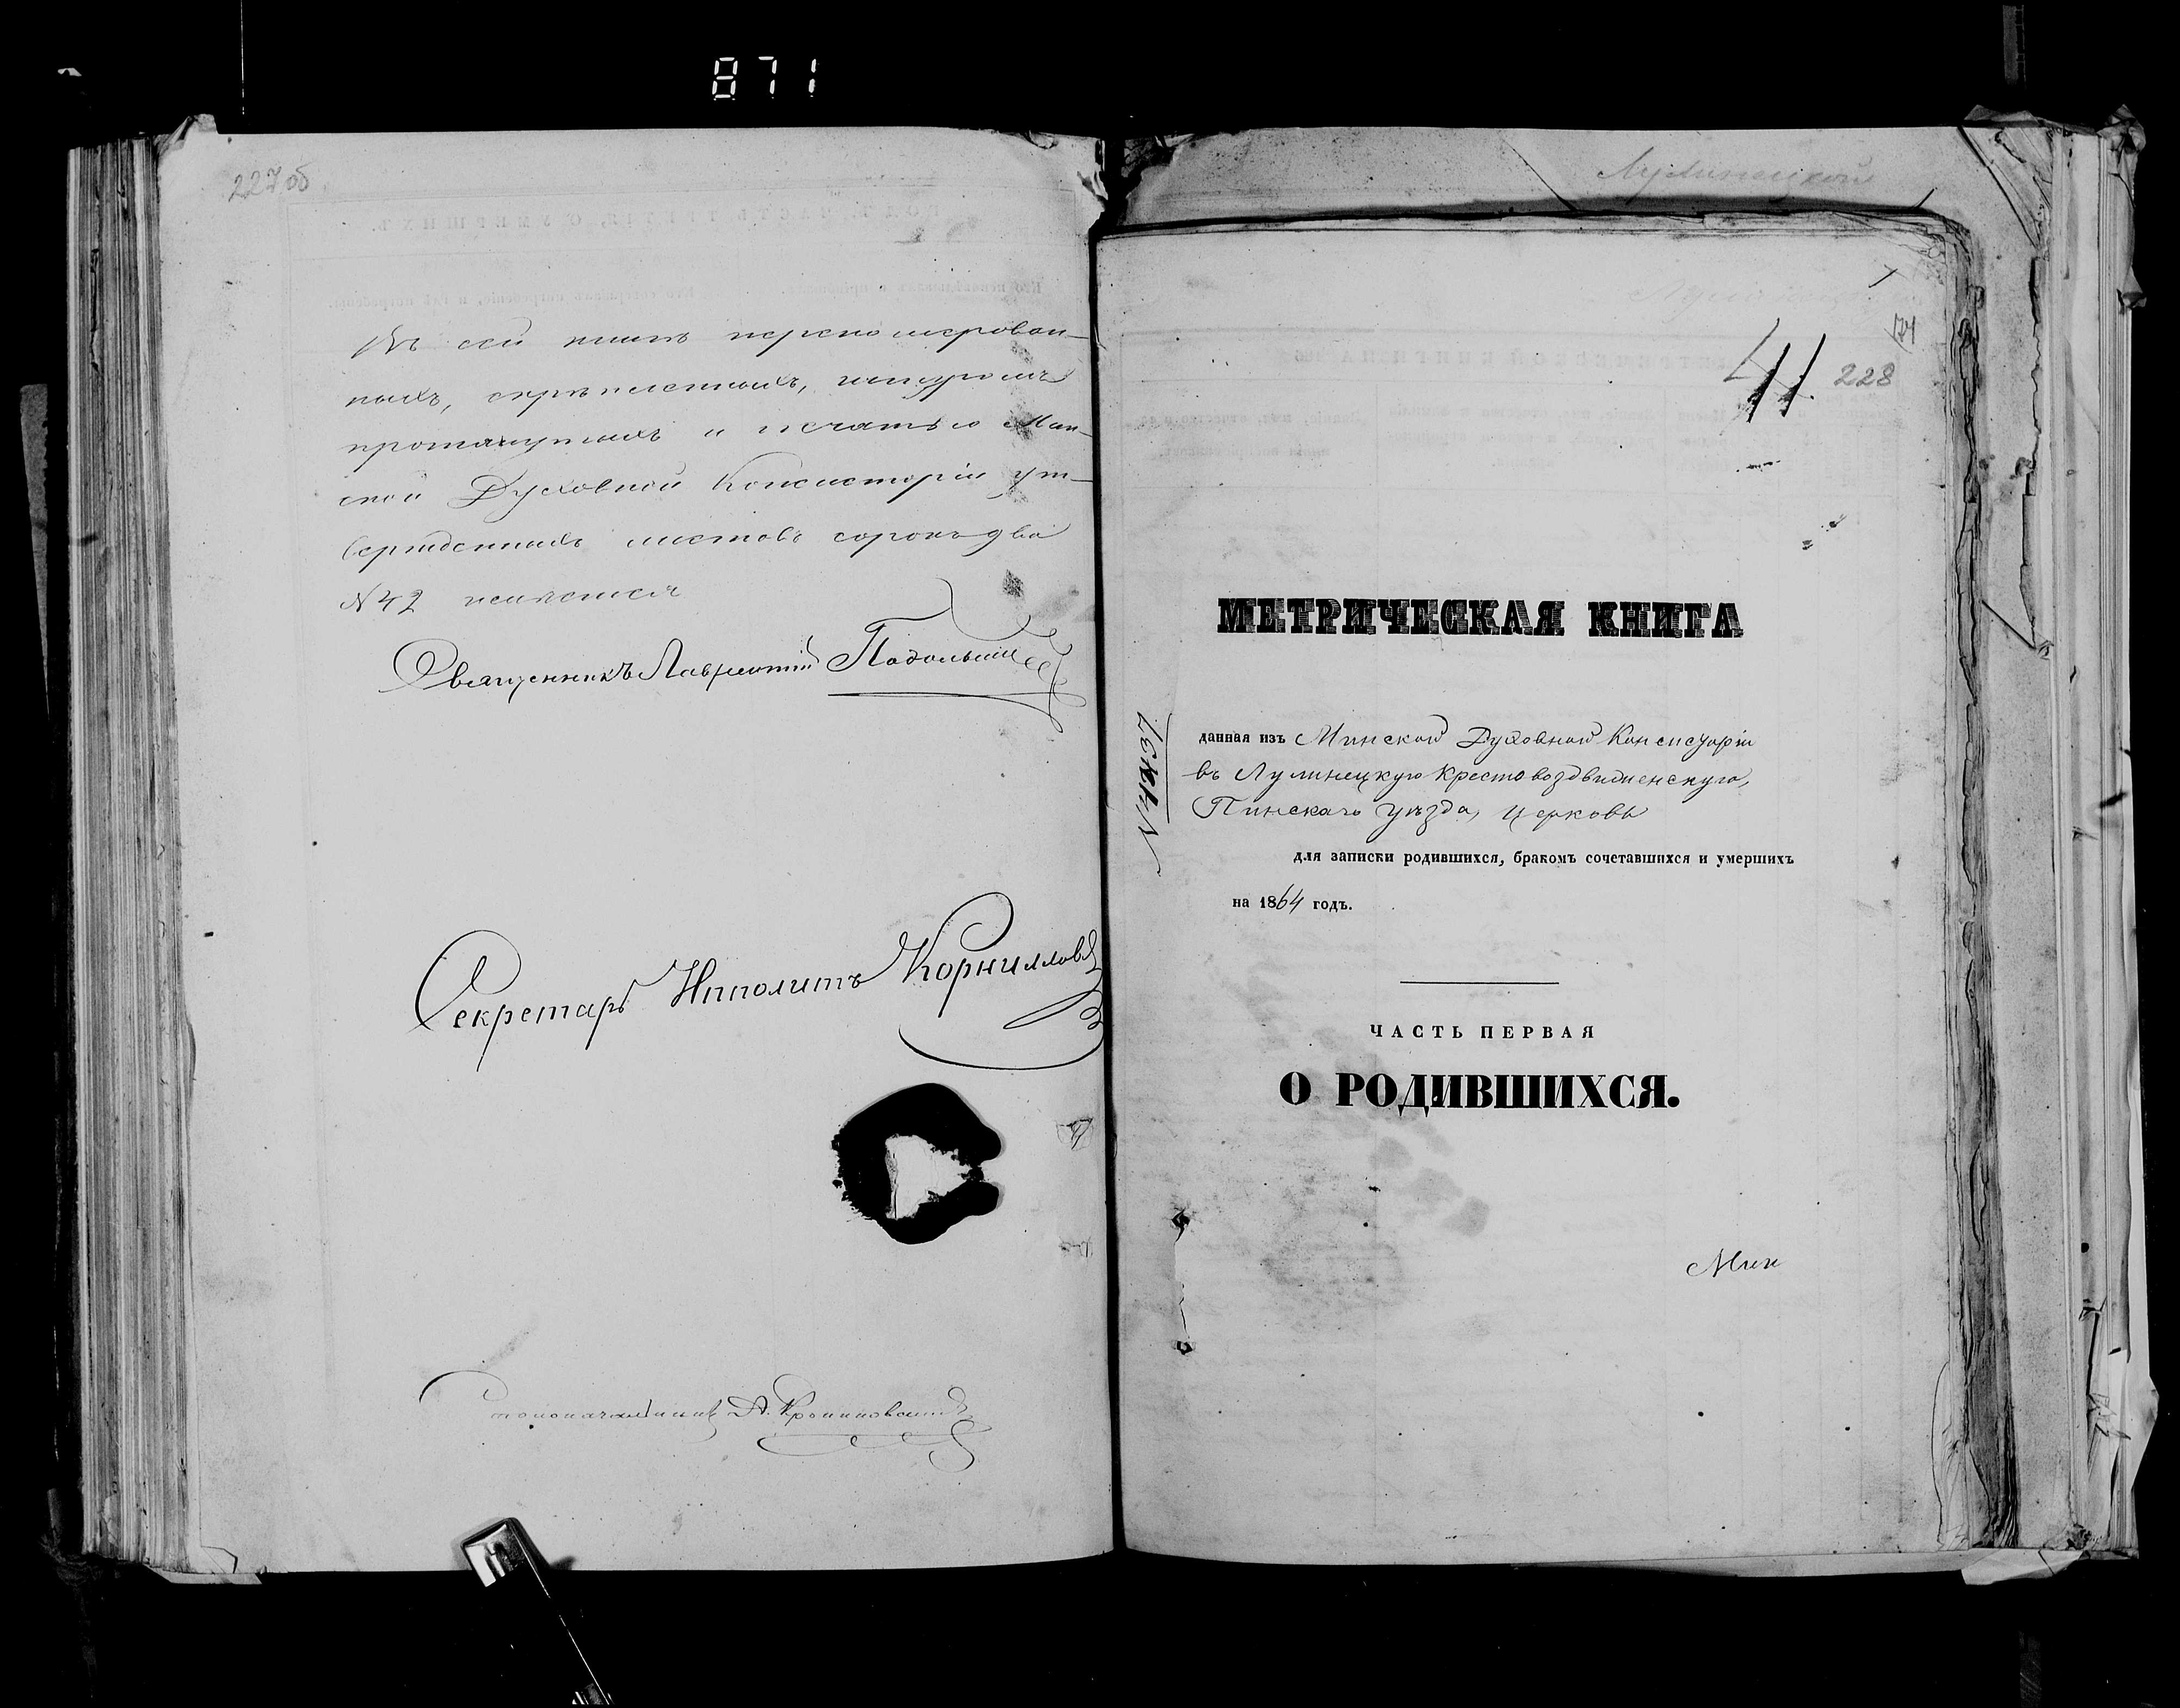 871
227 об
Въ сей книгѣ перенумерован-
ныхъ, скрѣпленныхъ, шнуромъ
протянутыхъ и печатью Мин-
ской Духовной Консисторіи ут-
вержденныхъ листовъ сорокъ два
№ 42 имѣется
Священникъ Лаврентій
Секретарь Ипполитъ Корниловъ
Столоначальникъ А.
Лулинецкой
228
41.
МЕТРИЧЕСКАЯ КНИГА
данная изъ Минской Духовной Консисторіи
въ Лулинецкую Крестовоздвиженскую,
Пинскаго уѣзда, церковь
для записки родившихся, бракомъ сочетавшихся и умершихъ
на 1864 годъ.
ЧАСТЬ ПЕРВАЯ
О РОДИВШИХСЯ.
Мин